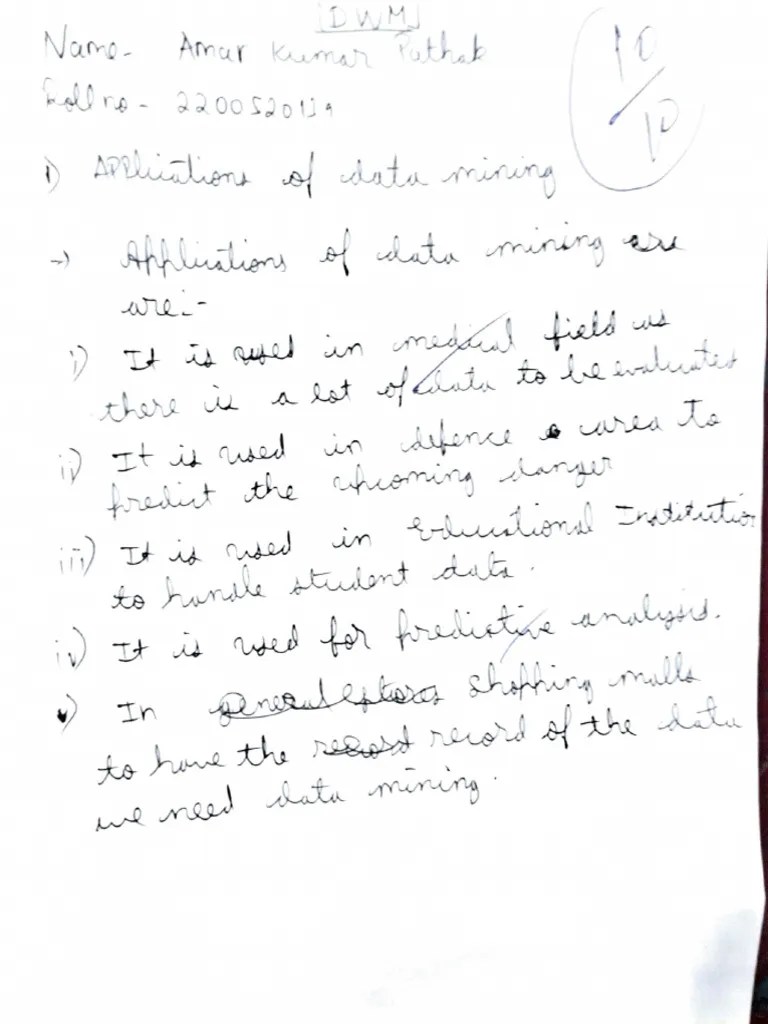 [DWM]
Name- Amar Kumar Pathak
Roll no - 2200520139
10/10
1) Applications of data mining
→ Applications of data mining are
are:-
i) It is used in medical field as
there is a lot of data to be evaluated
ii) It is used in defence area to
predict the upcoming danger
iii) It is used in Educational Institution
to handle student data.
iv) It is used for predictive analysis.
v) In general stores shopping malls
to have the record record of the data
we need data mining.